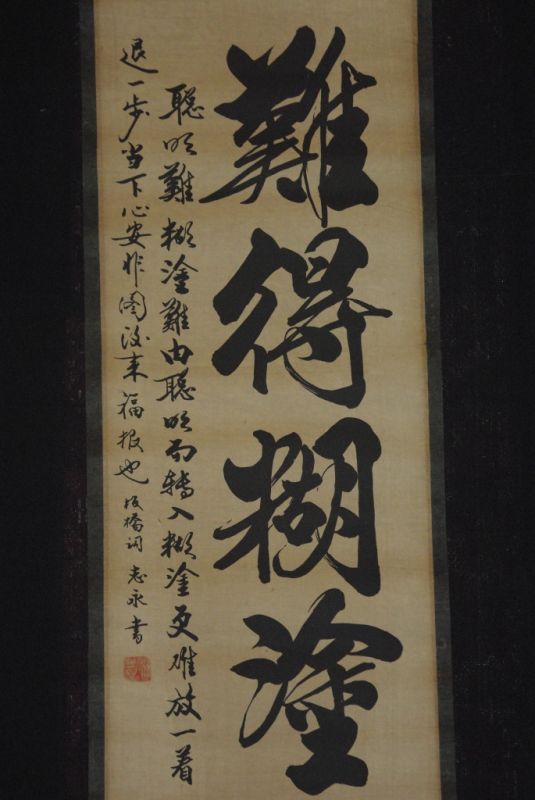 難得糊塗
聪明難糊塗難由聪明而轉入糊塗更难放一着
退一步当下心安非图后来福报也 板橋词 志永書